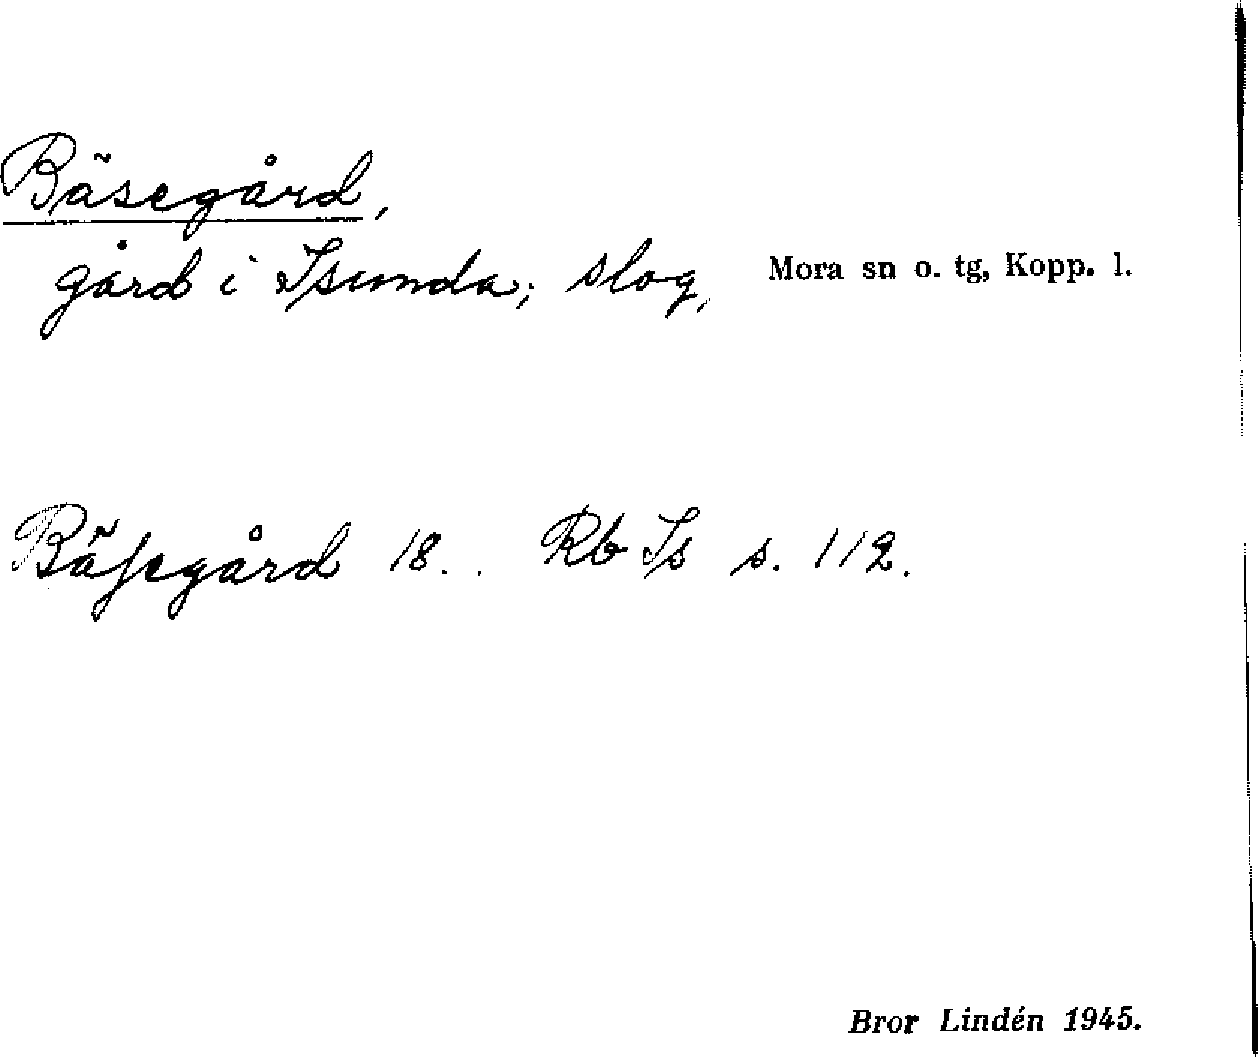 Bäsegård,
gård i Isunda; slog, Mora sn o. tg, Kopp. l.
Bäſegård 18 . . Rb Is s. 112.
Bror Lindén 1945.